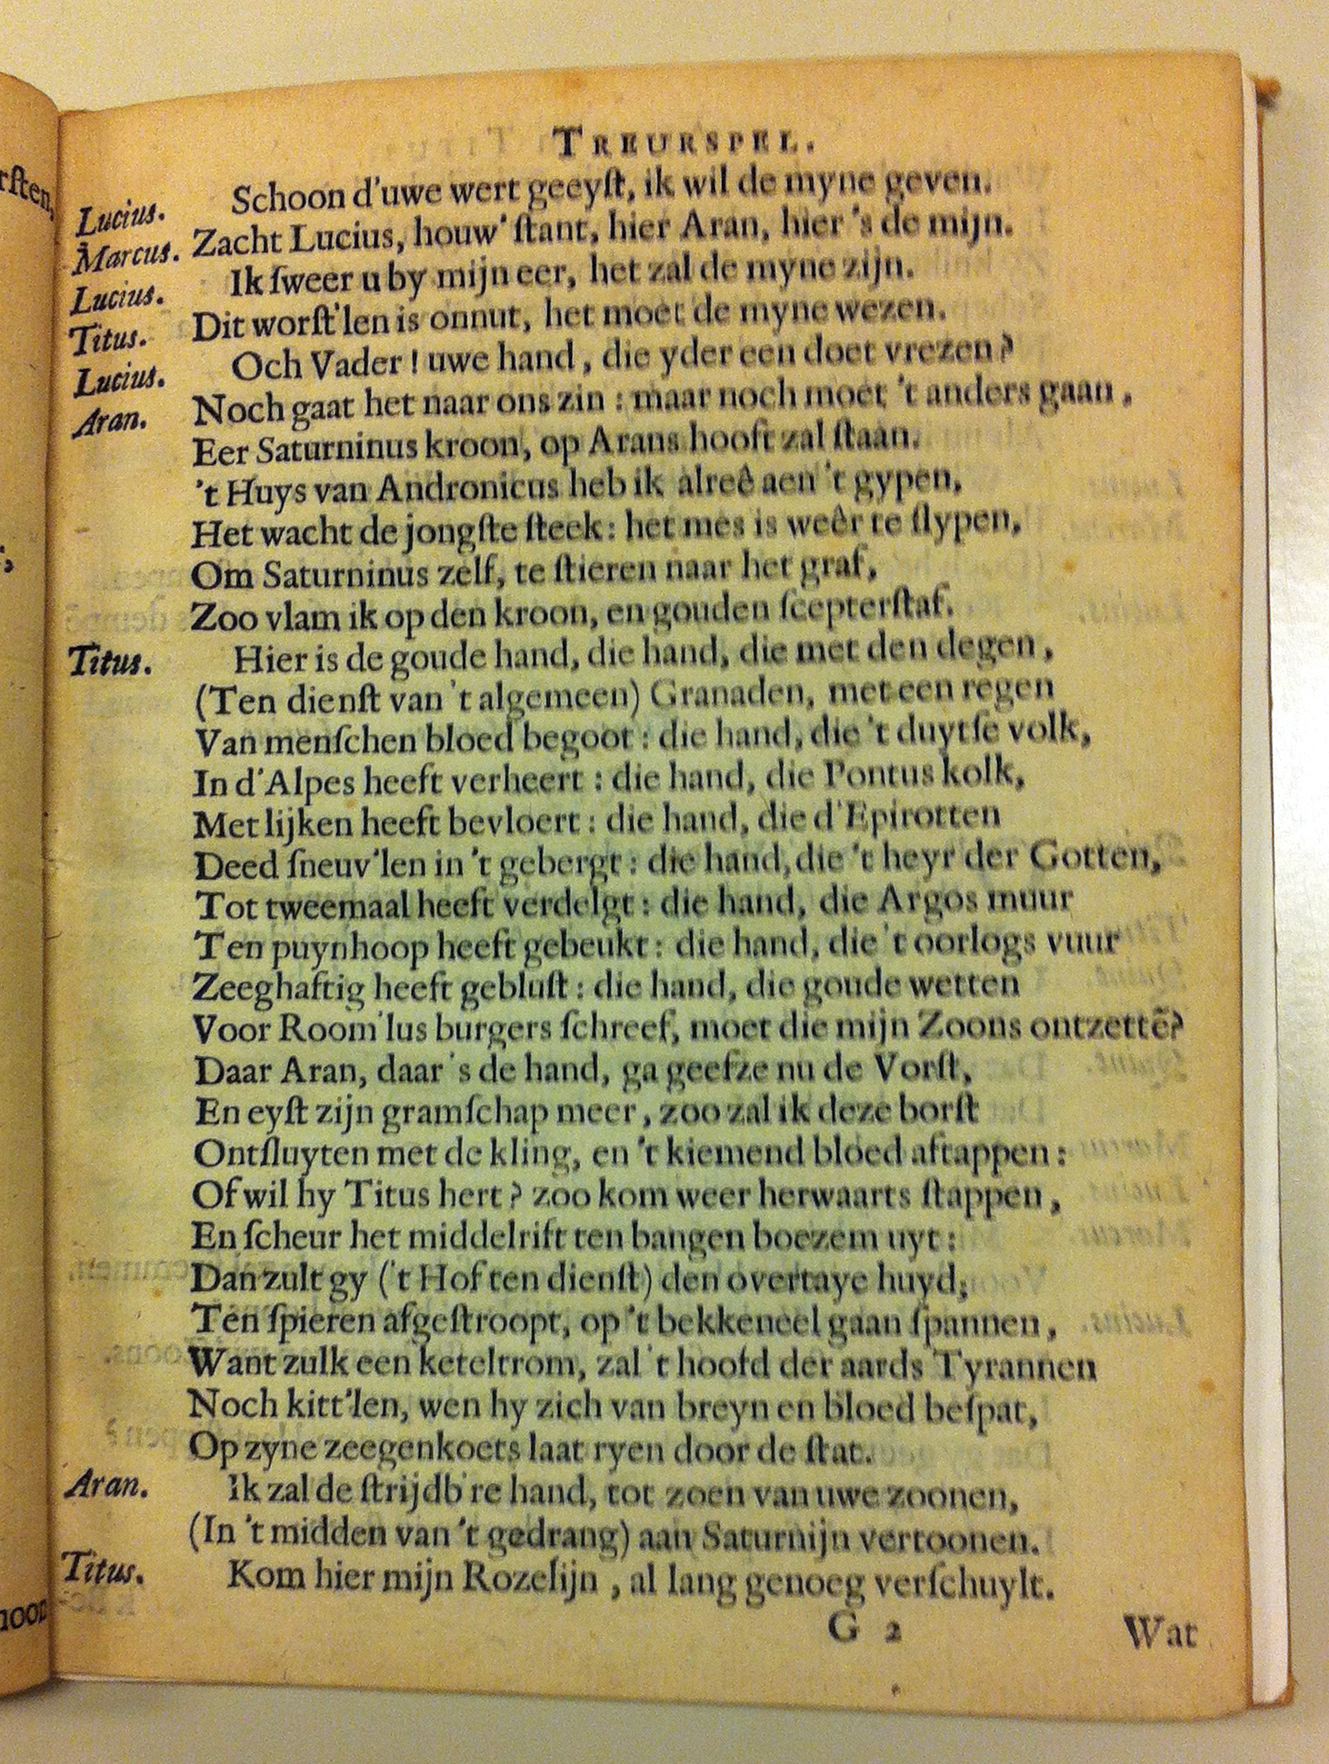 TREURSPEL.
Lucius. Schoon d'uwe wert geeyſt, ik wil de myne geven.
Marcus. Zacht Lucius, houw' ſtant, hier Aran, hier 's de mijn.
Lucius. Ik ſweer u by mijn eer, het zal de myne zijn.
Titus. Dit worſt'len is onnut, het moet de myne wezen.
Lucius. Och Vader! uwe hand, die yder een doet vrezen?
Aran. Noch gaat het naar ons zin: maar noch moet 't anders gaan,
Eer Saturninus kroon, op Arans hooft zal ſtaan.
't Huys van Andronicus heb ik alreê aen 't gypen,
Het wacht de jongſte ſteek: het mes is weêr te ſlypen,
Om Saturninus zelf, te ſtieren naar het graf,
Zoo vlam ik op den kroon, en gouden ſcepterſtaf.
Titus. Hier is de goude hand, die hand, die met den degen,
(Ten dienſt van 't algemeen) Granaden, met een regen
Van menſchen bloed begoot: die hand, die 't duytſe volk,
In d'Alpes heeft verheert: die hand, die Pontus kolk,
Met lijken heeft bevloert: die hand, die d'Epirotten
Deed ſneuv'len in 't gebergt: die hand, die 't heyr der Gotten,
Tot tweemaal heeft verdelgt: die hand, die Argos muur
Ten puynhoop heeft gebeukt: die hand, die 't oorlogs vuur
Zeeghaftig heeft gebluſt: die hand, die goude wetten
Voor Room'lus burgers ſchreef, moet die mijn Zoons ontzettē?
Daar Aran, daar 's de hand, ga geefze nu de Vorſt,
En eyſt zijn gramſchap meer, zoo zal ik deze borſt
Ontſluyten met de kling, en 't kiemend bloed aftappen:
Of wil hy Titus hert? zoo kom weer herwaarts ſtappen,
En ſcheur het middelrift ten bangen boezem uyt:
Dan zult gy ('t Hof ten dienſt) den overtaye huyd,
Ten ſpieren afgeſtroopt, op 't bekkeneel gaan ſpannen,
Want zulk een keteltrom, zal 't hoofd der aards Tyrannen
Noch kitt'len, wen hy zich van breyn en bloed beſpat,
Op zyne zeegenkoets laat ryen door de ſtat.
Aran. Ik zal de ſtrijdb're hand, tot zoen van uwe zoonen,
(In 't midden van 't gedrang) aan Saturnijn vertoonen.
Titus. Kom hier mijn Rozelijn, al lang genoeg verſchuylt.
G 2 Wat